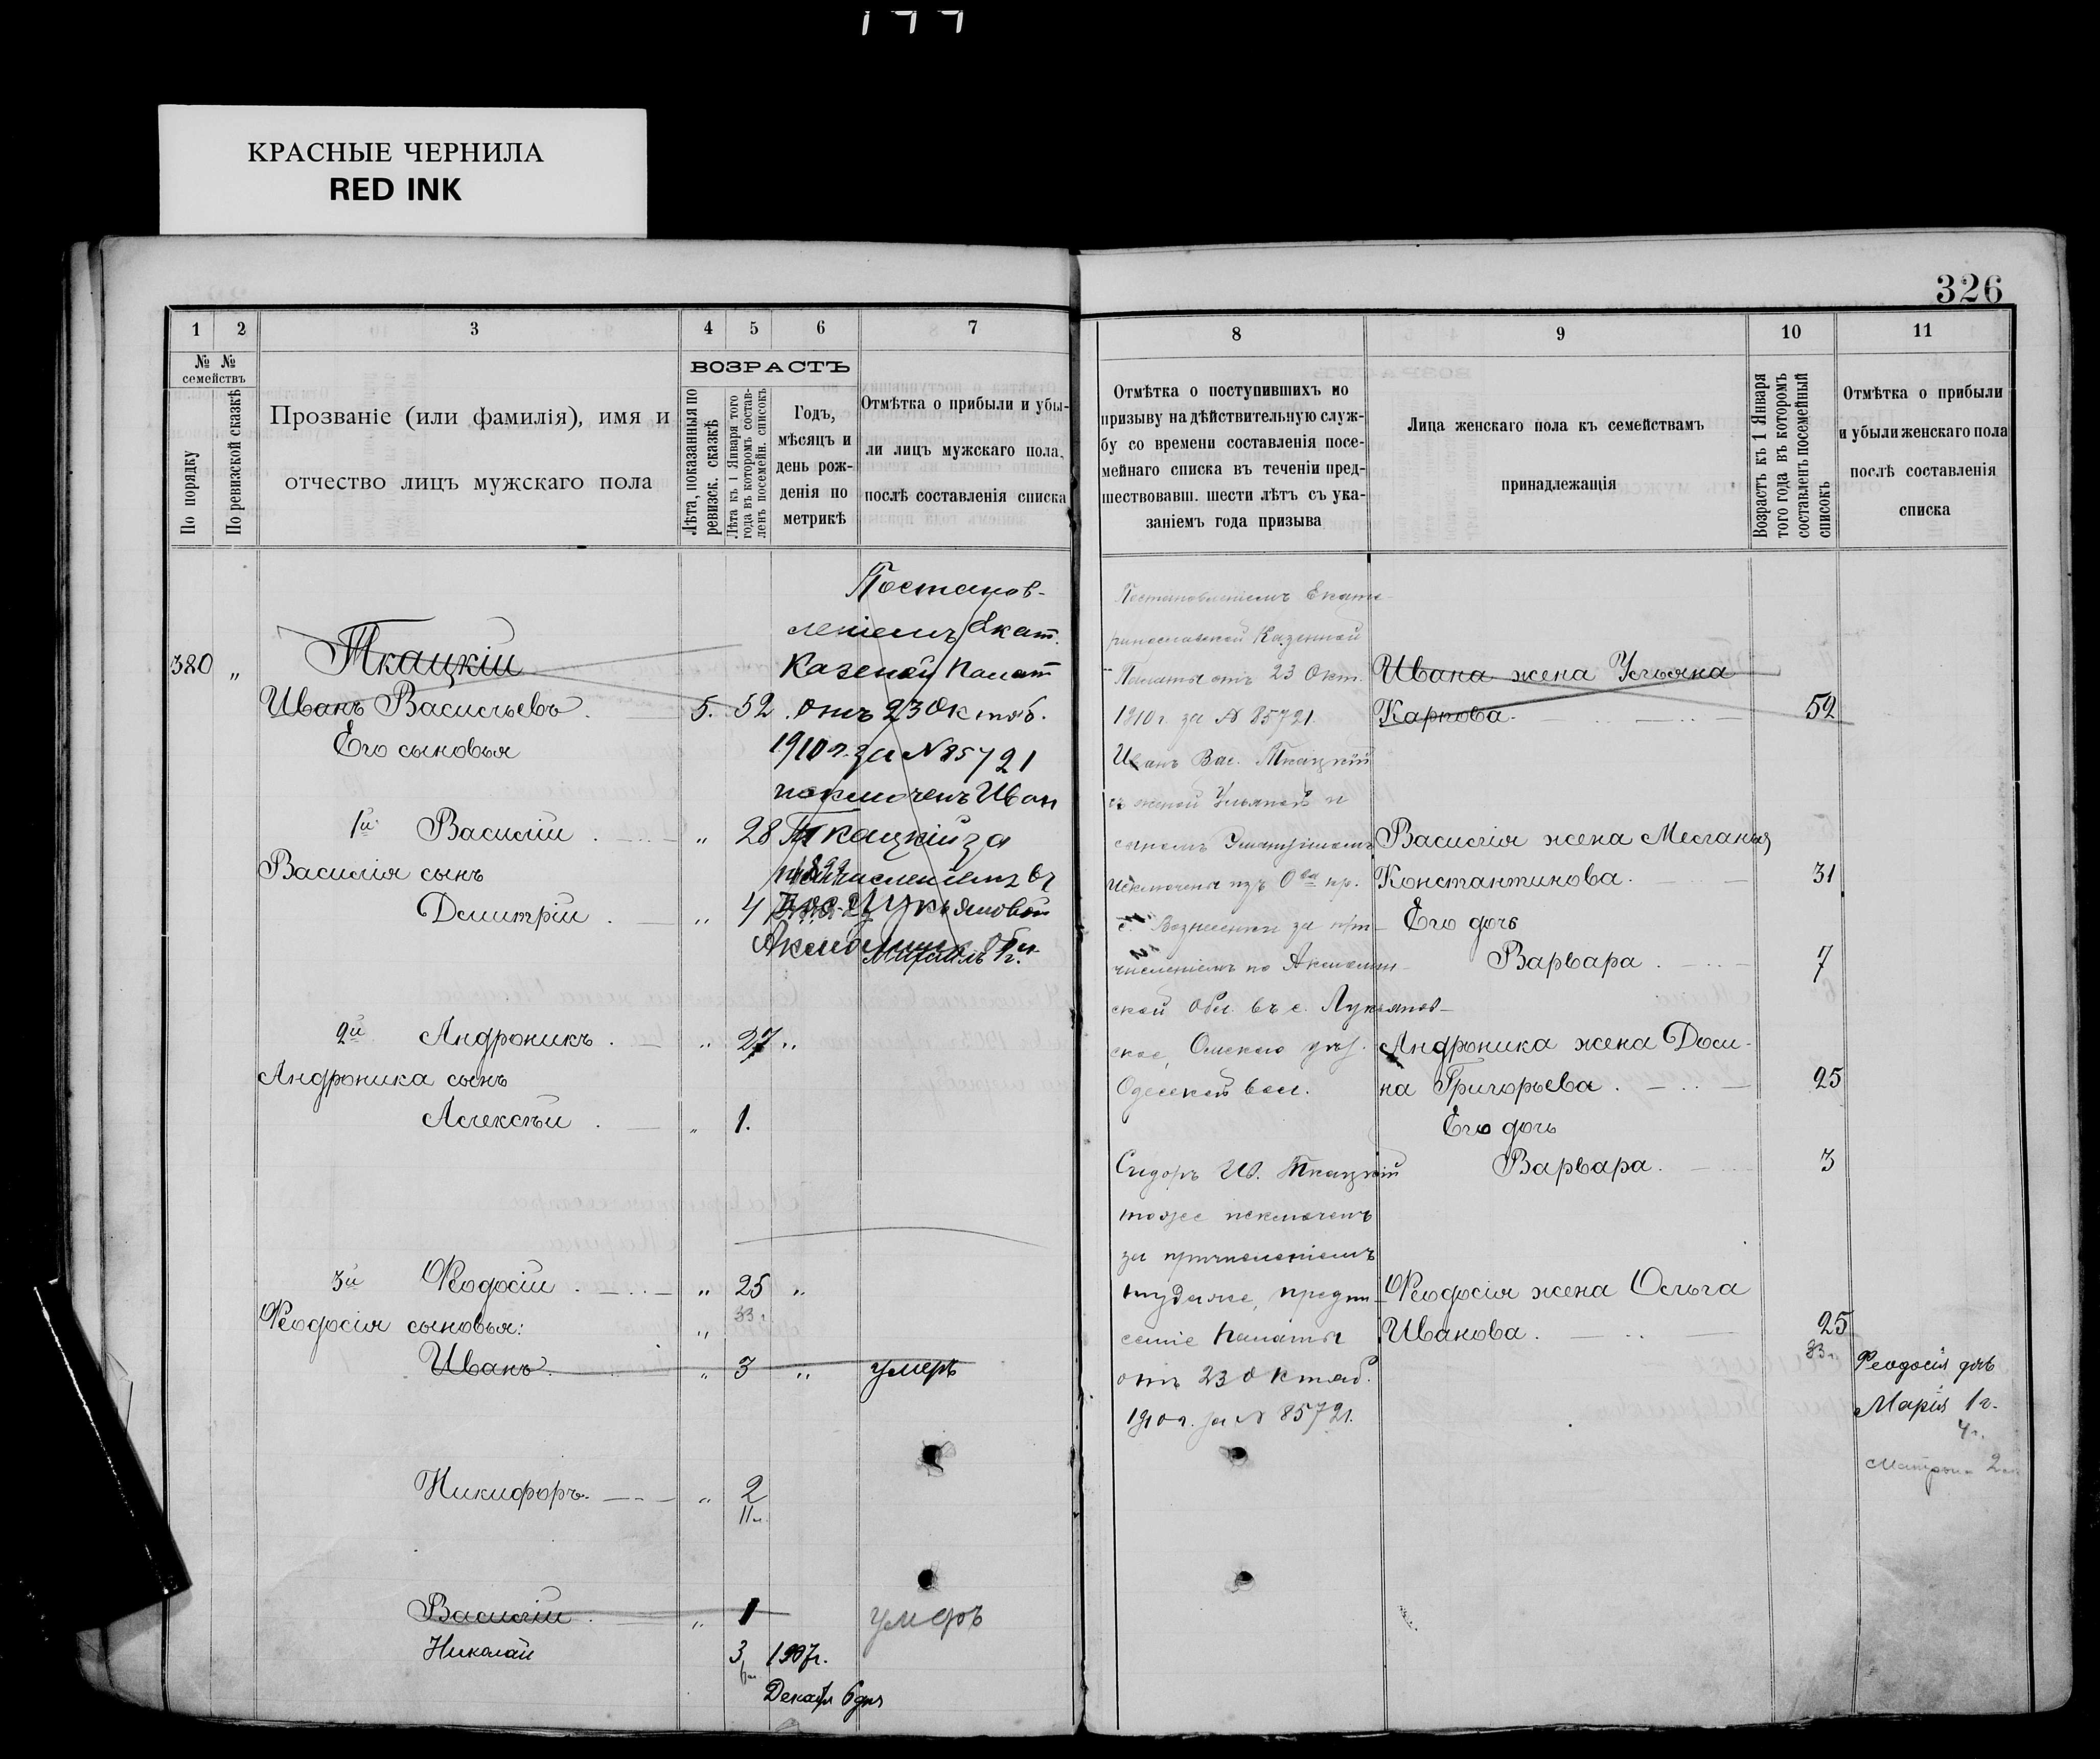 177
КРАСНЫЕ ЧЕРНИЛА
RED INK
326
1 2 3 4 5 6 7
№ № семействъ
По порядку
По ревизской сказкѣ
Прозваніе (или фамилія), имя и
отчество лицъ мужскаго пола
ВОЗРАСТЪ
Лѣта, показанныя по
ревизск. сказкѣ
Лѣта къ 1 Января того
года въ которомъ состав-
ленъ посемейн. списокъ
Годъ,
мѣсяцъ и
день рож-
денія по
метрикѣ
Отмѣтка о прибыли и убы-
ли лицъ мужскаго пола,
послѣ составленія списка
Постанов-
леніемъ Екат.
Казеной Палат
380 „ Ткацкій
Иванъ Васильевъ. 5. 52
отъ 23 Октяб.
Его сыновья
1910 г. за № 85721
исключенъ Иван
1й Василій „ 28
Ткацкій за
Василія сынъ
1899
причисленіемъ въ
Демитрій „ 4
Лукьяновой
Акмолинск. Обл.
2й Андроникъ „ 27 „
Андроника сынъ
Алексѣй „ 1.
3й Ѳеодосій „ 25 „
33 г.
Ѳеодосія сыновья: „
Иванъ „ 3 „ умеръ
Никифоръ „ 2
11 л.
Василій „ 1 умеръ
Николай 3 1907г.
Декабр 6 дня
8 9 10 11
Отмѣтка о поступившихъ по
призыву на дѣйствительную служ-
бу со времени составленія посе-
мейнаго списка въ теченіи пред-
шествовавш. шести лѣтъ съ ука-
заніемъ года призыва
Лица женскаго пола къ семействамъ
принадлежащія
Возрастъ къ 1 Января
того года въ которомъ
составленъ посемейный
списокъ
Отмѣтка о прибыли
и убыли женскаго пола
послѣ составленія
списка
Постановленіемъ Екате-
ринославской Казенной
Палаты отъ 23 Окт.
1910 г. за № 85721.
Иванъ Вас. Ткацкій
съ женой Ульяной и
сыномъ
исключены изъ
с. Вознесенки за при-
численіемъ по Акмолин-
ской Обл. въ с. Лукьянов-
ское, Омскаго уѣз.
Одесской вол.
Сидоръ Ив. Ткацкій
тоже исключенъ
за причисленіемъ
туда же, предпи-
саніе Палаты
отъ 23 Октяб.
1910 г. за № 85721.
Ивана жена Ульяна
Карпова. 52
Василія жена Меланья
Константинова. 31
Его дочь
Варвара. 7
Андроника жена Доми-
на Григорьева. 25
Его дочь
Варвара. 3
Ѳеодосія жена Ольга
Иванова. 25
33 г.
Ѳеодосія дочь
Марія 1 г.
4 г.
Матрона 2